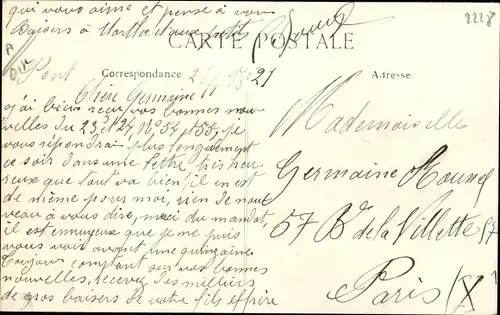 qui vous aime et pense à vous
Baisers à Marthe et aux petits
CARTE POSTALE
2228
Pont
Correspondance
Adresse
Chère Germaine
j'ai bien reçu vos bonnes nou-
velles du 23 et 24, No 54 et 55, je
vous répondrai plus longuement
ce soir dans une lettre très heu-
reux que tout va bien, il en est
de même pour moi, rien de nou-
veau à vous dire, merci du mandat,
il est ennuyeux que je ne puis
vous voir avant une quinzaine
Toujours comptant sur vos bonnes
nouvelles, recevez des milliers
de gros baisers de votre fils
Mademoiselle
Germaine
57 Bd de la Villette 57
Paris (X